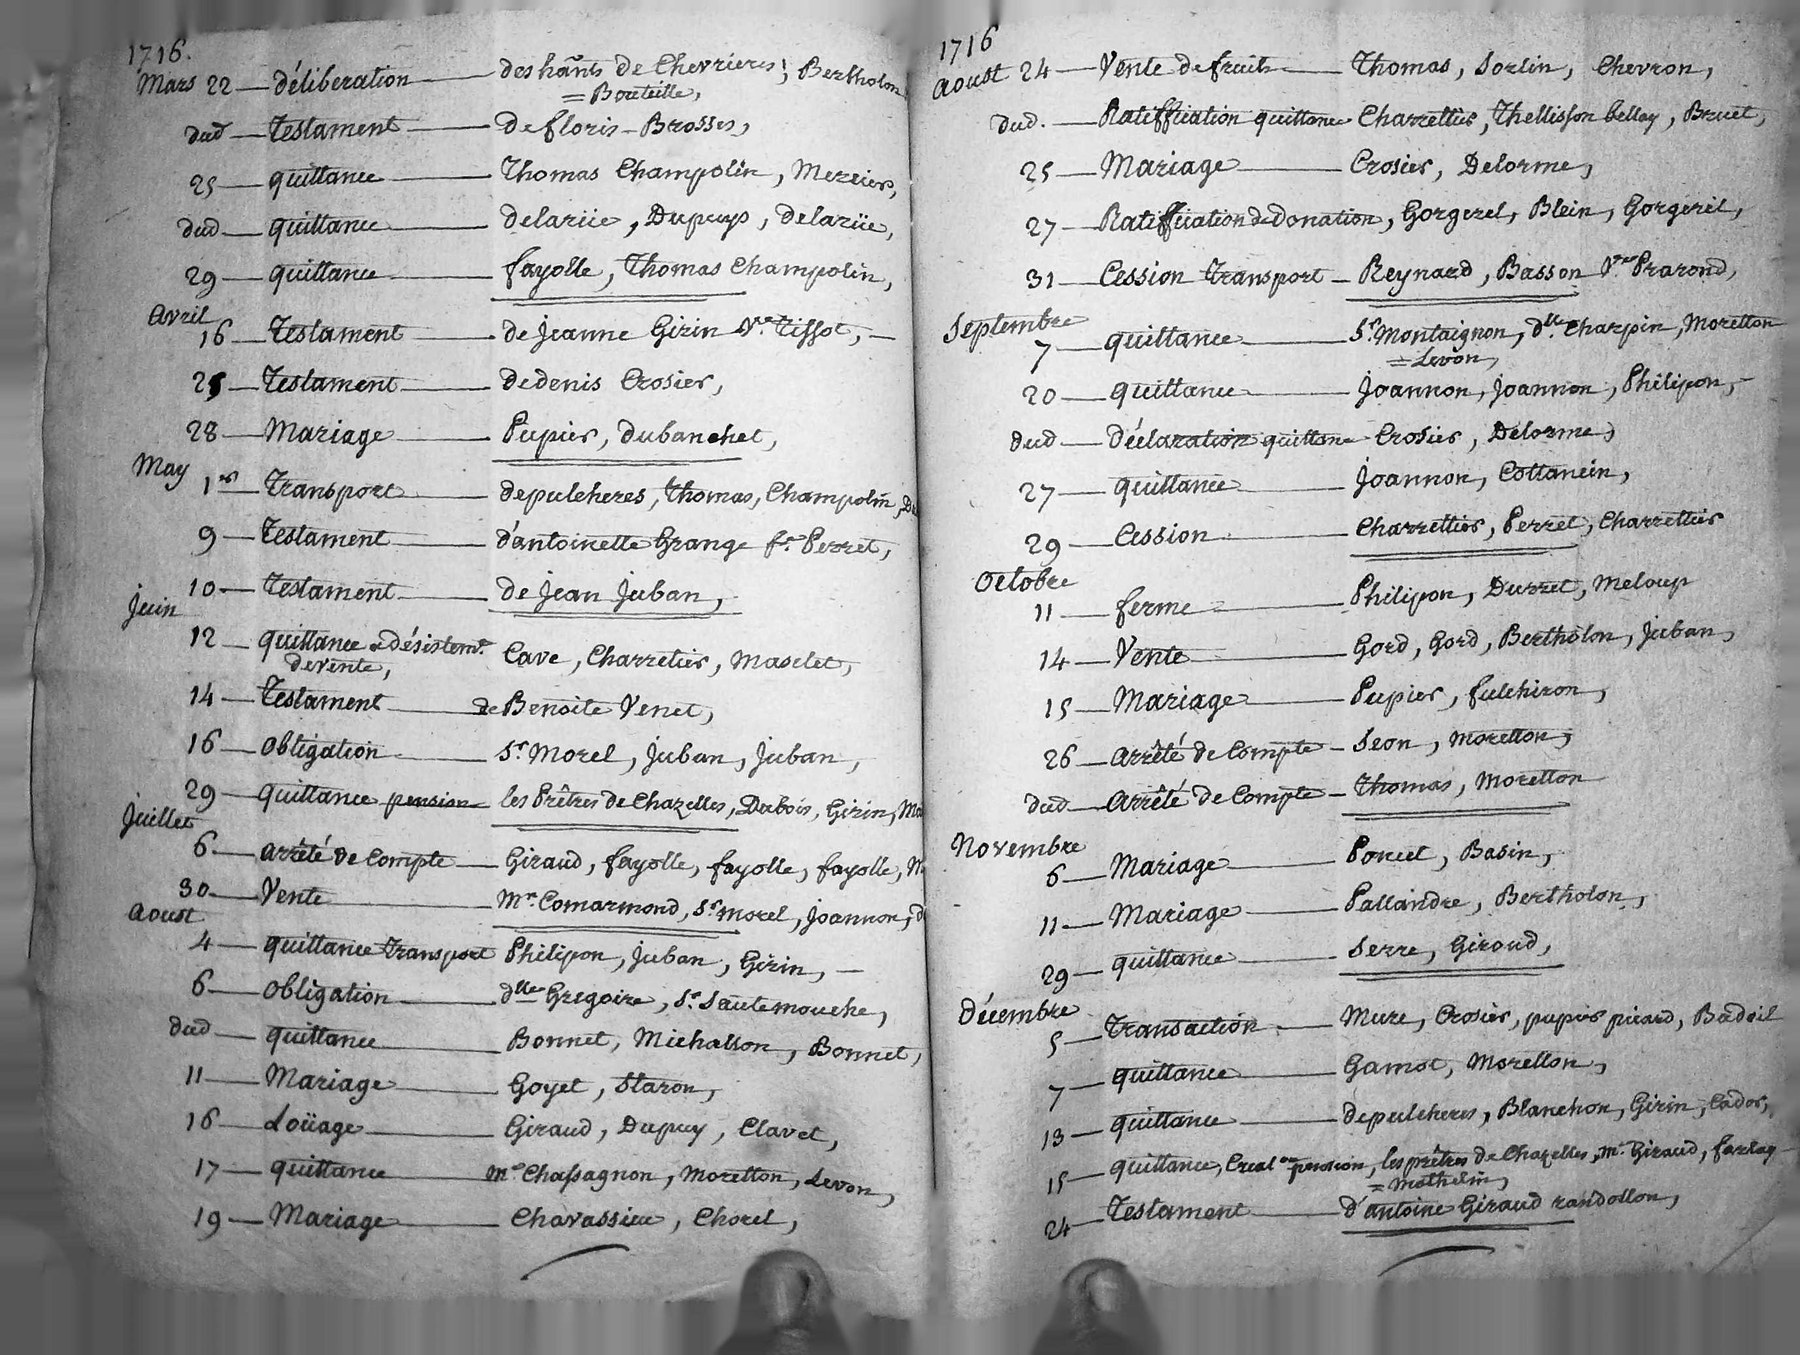 1716.
Mars 22 — délibération — des hants de Chevrieres; Bertholon
= Bouteille,
dud — Testament — de floris Brosses,
25 — quittance — Thomas Champolin, Mercier,
dud — quittance — delarüe, Dupuys, delarüe,
29 — quittance — fayolle, Thomas Champolin,
Avril
16 — Testament — de Jeanne Girin Ve Tissot, —
25 — Testament — de denis Crosier,
28 — Mariage — Pupier, dubanchet,
May
1er — Transport — depulcheres, Thomas, Champolin,
9 — Testament — d'antoinette Grange fe Perret,
10 — Testament — de Jean Juban,
Juin
12 — quittance & désistemt
de vente, Cave, Charretier, Masclet,
14 — Testament — de Benoite Venet,
16 — obligation — Sr Morel, Juban, Juban,
29 — quittance pension — les Prêtres de Chazelles, Dubois, Girin,
Juillet
6 — arrêté de Compte — Giraud, fayolle, fayolle, fayolle,
30 — Vente — Mr Comarmond, Sr morel, Joannon,
Aoust
4 — quittance Transport Philipon, Juban, Girin, —
6 — obligation — dlle Gregoire, Sr Sautemouche,
dud — quittance — Bonnet, Michallon, Bonnet,
11 — Mariage — Goyet, Staron,
16 — Loüage — Giraud, Dupuy, Clavet,
17 — quittance — Me Chassagnon, Moretton, Levon,
19 — Mariage — Chavassieu, Chorel,
1716
Aoust 24 — Vente de fruits — Thomas, Sorlin, Chevron,
dud. — Ratiffication quittance Charrettier, Thellisson bellay, Bruet,
25 — Mariage — Crosier, Delorme,
27 — Ratiffication de Donation, Gorgeret, Blein, Gorgeret,
31 — Cession Transport — Reynard, Basson Ve Prarond,
Septembre
7 — quittance — Sr Montaignon, dlle Charpin, Moretton
= Levon,
20 — quittance — Joannon, Joannon, Philipon, —
dud — déclaration quittance Crosier, Delorme,
27 — quittance — Joannon, Cottancin,
29 — Cession — Charrettier, Perret, Charrettier
Octobre
11 — ferme — Philipon, Durret, Meloup
14 — Vente — Gord, Gord, Bertholon, Juban,
15 — Mariage — Pupier, fulchiron,
26 — Arrêté de Compte — Seon, Moretton,
dud — Arrêté de Compte — Thomas, Moretton
Novembre
6 — Mariage — Poncet, Basin,
11 — Mariage — Pallandre, Bertholon,
29 — quittance — Serre, Giroud,
Décembre
5 — Transaction — Mure, Crosier, pupier picard, Badoil
7 — quittance — Gamot, Moretton,
13 — quittance — depulcheres, Blanchon, Girin, Cador,
15 — quittance, Creat on pension, les prêtres de Chazelles, Mr Giraud, farlay
= Mathelin,
24 — Testament — d'antoine Giraud randollon,